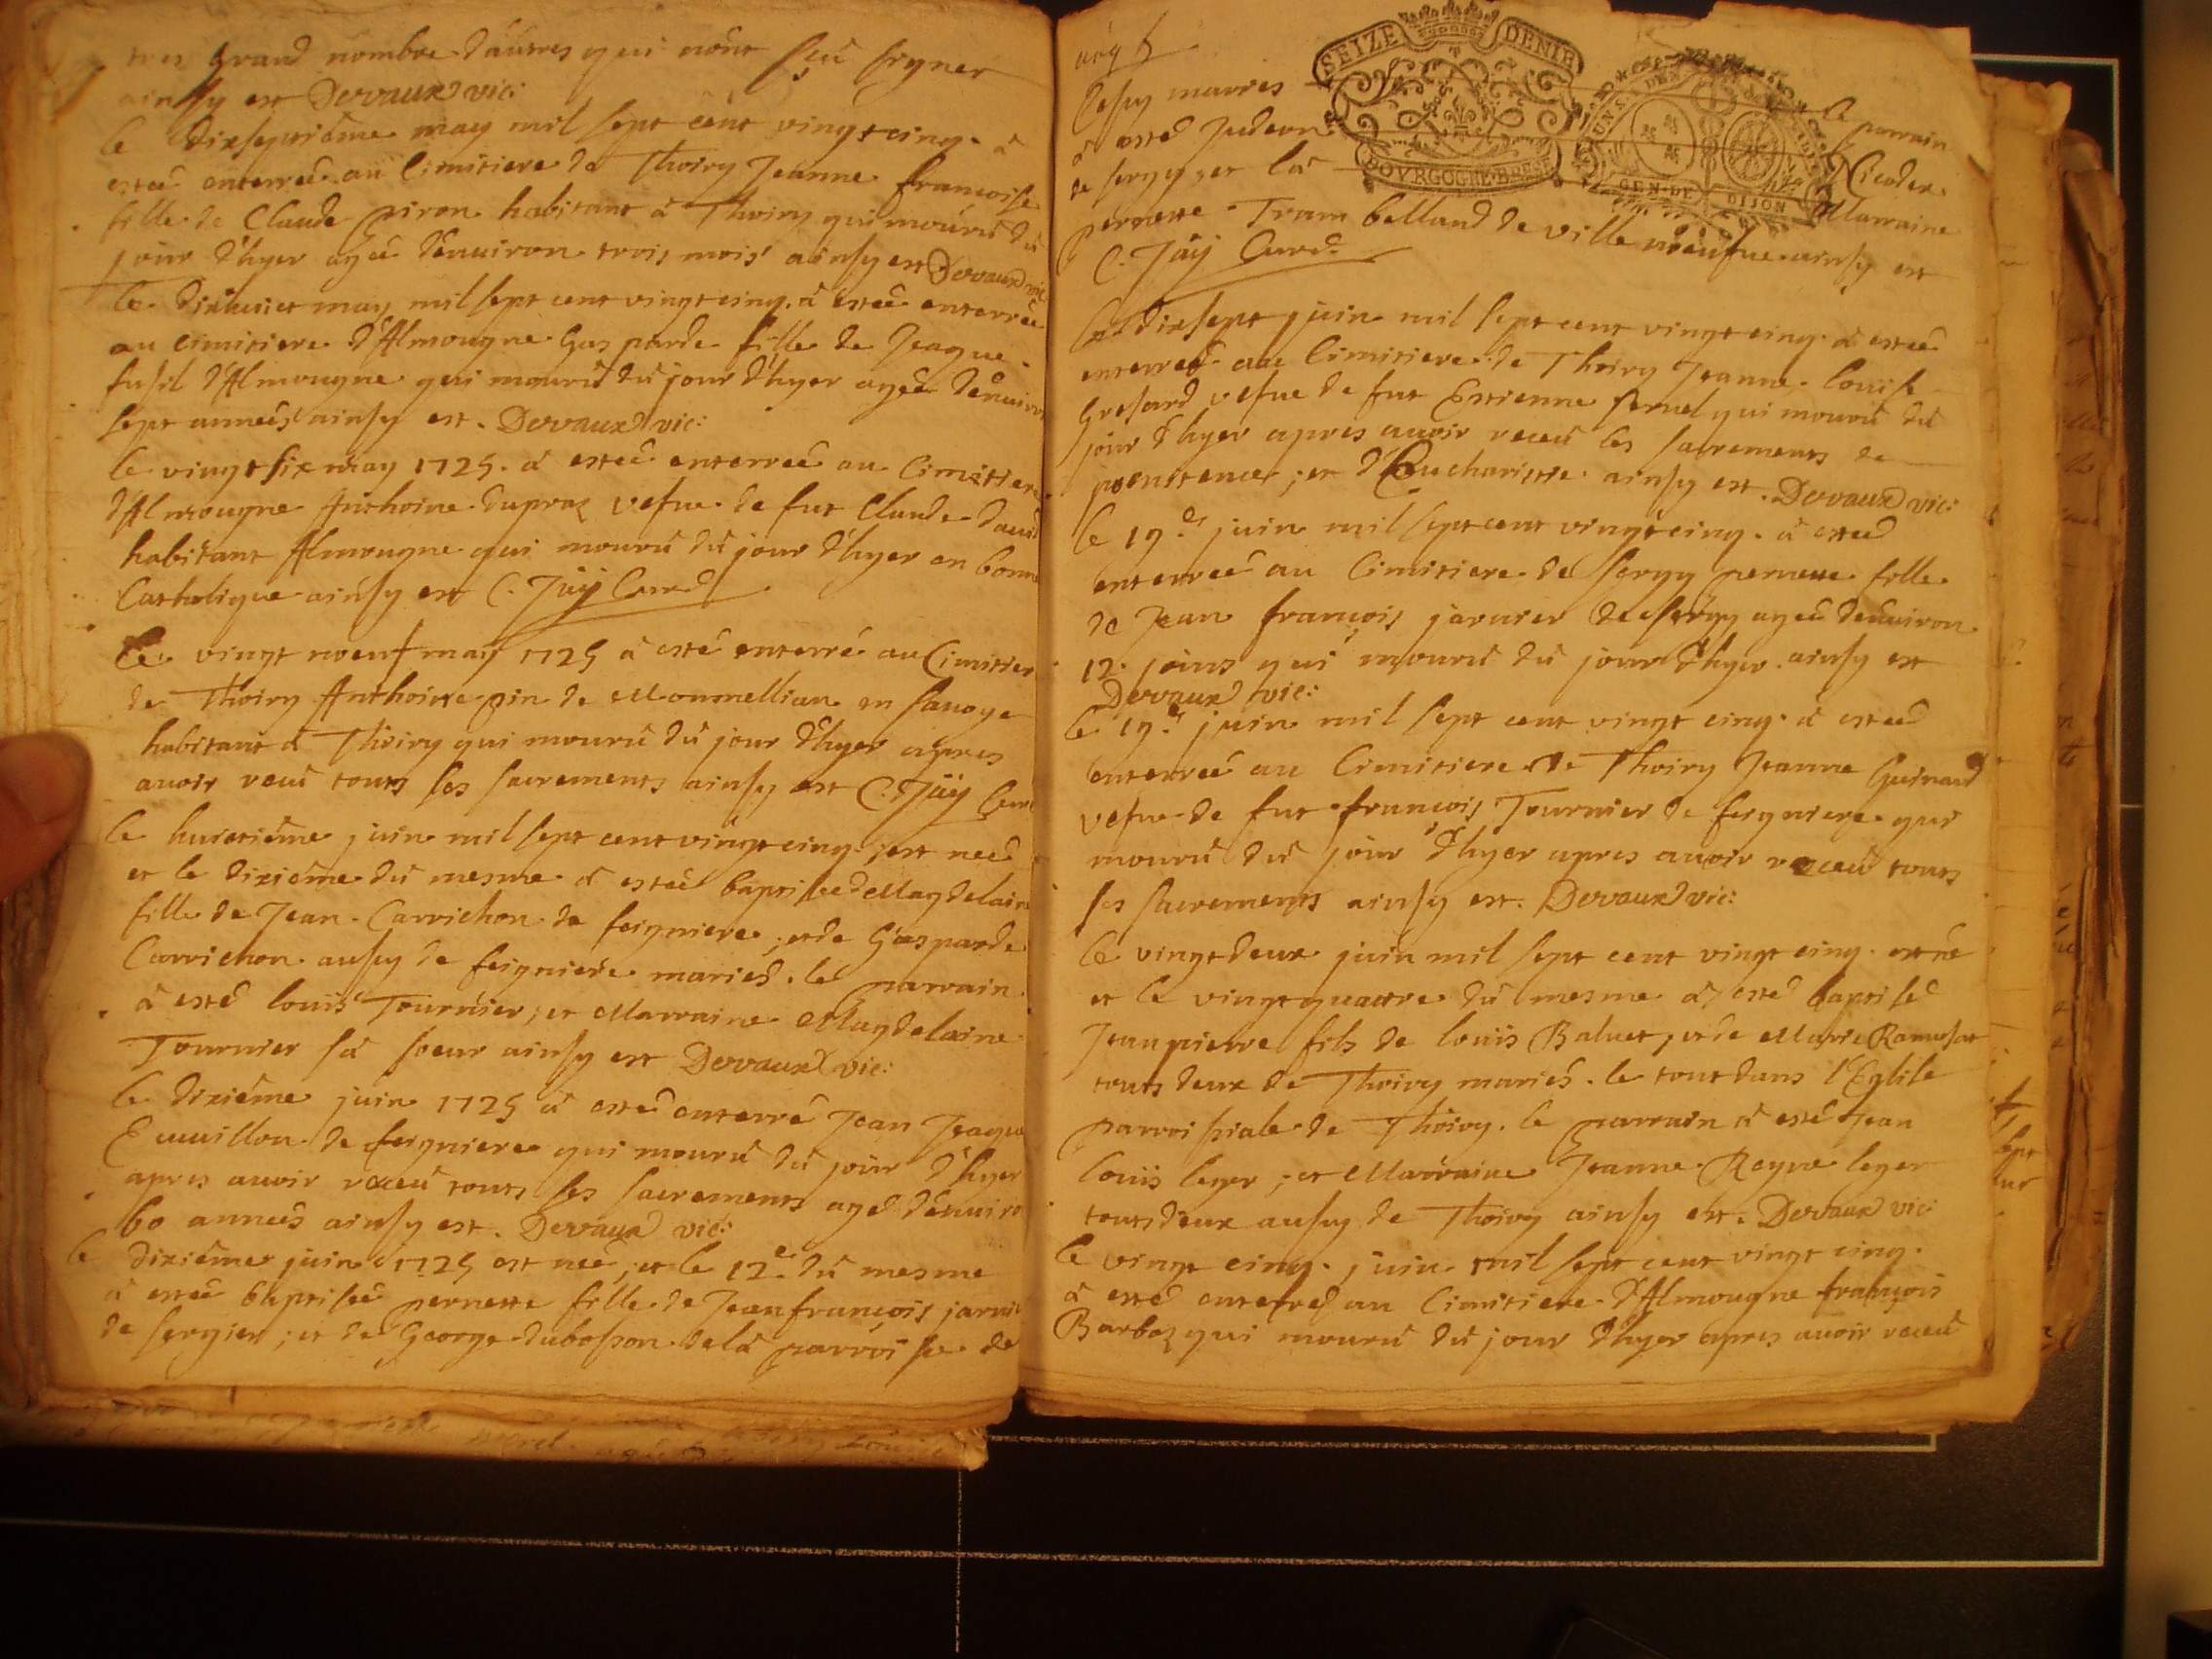 tres grand nombre d'autres qui n'ont sçu signer
ainsy est Dervaux vic:
le dixseptiême may mil sept cent vingt cinq. à
esteé enterreé au Cimitiere de Thoiry Jeanne francoise
fille de Claude piron habitant à Thoiry qui mourû du
jour d'hyer ageé d'enuiron trois mois ainsy est Dervaux vic
le dixhuict may mil sept cent vingt cinq. à esteé enterreé
au cimitiere d'Almougne Gasparde fille de Jeaque
fusil d'Almougne qui mourû du jour d'hyer ageé d'enuiron
sept anneés ainsy est. Dervaux vic:
le vingt six may 1725. à esteé enterreé au Cimitiere
d'Almougne Anthoine dupraz vefue de fut Claude dauid
habitant Almougne qui mourû du jour d'hyer en bonne
Catholique ainsy est C. Jaÿ Curé
le vingt noeuf may 1725 à esté enterré au Cimitier
de Thoiry Anthoine pin de Monmellian en sauoye
habitant à Thoiry qui mourû du jour d'hyer apres
avoir receu touts ses sacrements ainsy est C. Jaÿ Curé
le huictiême juin mil sept cent vingt cinq. est neé
et le dixiême du mesme à esteé baptiseé Magdelaine
fille de Jean Carrichon de feigniere, et de Gasparde
Carrichon aussy de feigniere mariés. le parrain
à esté louis Tournier, et Marraine Magdelaine
Tournier sa soeur ainsy est Dervaux vic:
le dixiême juin 1725 à esté enterré Jean Jeaque
de feigniere qui mourû du jour d'hyer
apres avoir receu touts ses sacrements agé d'enuiron
60 anneés ainsy est. Dervaux vic:
le dixiême juin 1725 est neé, et le 12e. du mesme
à esteé baptiseé pernette fille de Jean francois jarnier
de sergier; et de George dubosson de la parroisse de
mariés le parrain
à esté Nicodex
de sergy, et la Marraine
pernette Tram belland de ville noeufue ainsy est
C. Jaÿ Curé
le dixsept juin mil sept cent vingt cinq. à esteé
enterreé au Cimitiere de Thoiry Jeanne louise
Grosard vefue de fut Estienne qui mourû du
jour d'hyer apres auoir receu les sacrements de
poenitence, et d'Eucharistie ainsy est. Dervaux vic:
le 19e. juin mil sept cent vingt cinq. à esteé
enterreé au Cimitiere de sergy pernette fille
de Jean francois jarnier de sergy ageé d'enuiron
12. joins qui mourû du jour d'hyer. ainsy est
Dervaux vic:
le 19e. juin mil sept cent vingt cinq. à esteé
enterreé au Cimitiere de Thoiry Jeanne Guinard
vefue de fut francois Tournier de feigniere qui
mourû du jour d'hyer apres auoir receu touts
ses sacrements ainsy est. Dervaux vic:
le vingt deux juin mil sept cent vingt cinq. est né
et le vingt quattre du mesme à esté baptisé
Jean pierre fils de louis Baluet, et de Marie Ramusat
touts deux de Thoiry mariés. le tout dans l'Eglise
parroissiale de Thoiry. le parrain à esté Jean
louis leger, et Marraine Jeanne Reyne leger
touts deux aussy de Thoiry ainsy est. Dervaux vic:
le vingt cinq. juin mil sept cent vingt cinq.
à esté enterré au Cimitiere d'Almougne francois
Barbaz qui mourû du jour d'hyer apres auoir receu
SEIZE DENIE
BOVRGOGNE BRESSE
GEN. DE DIJON